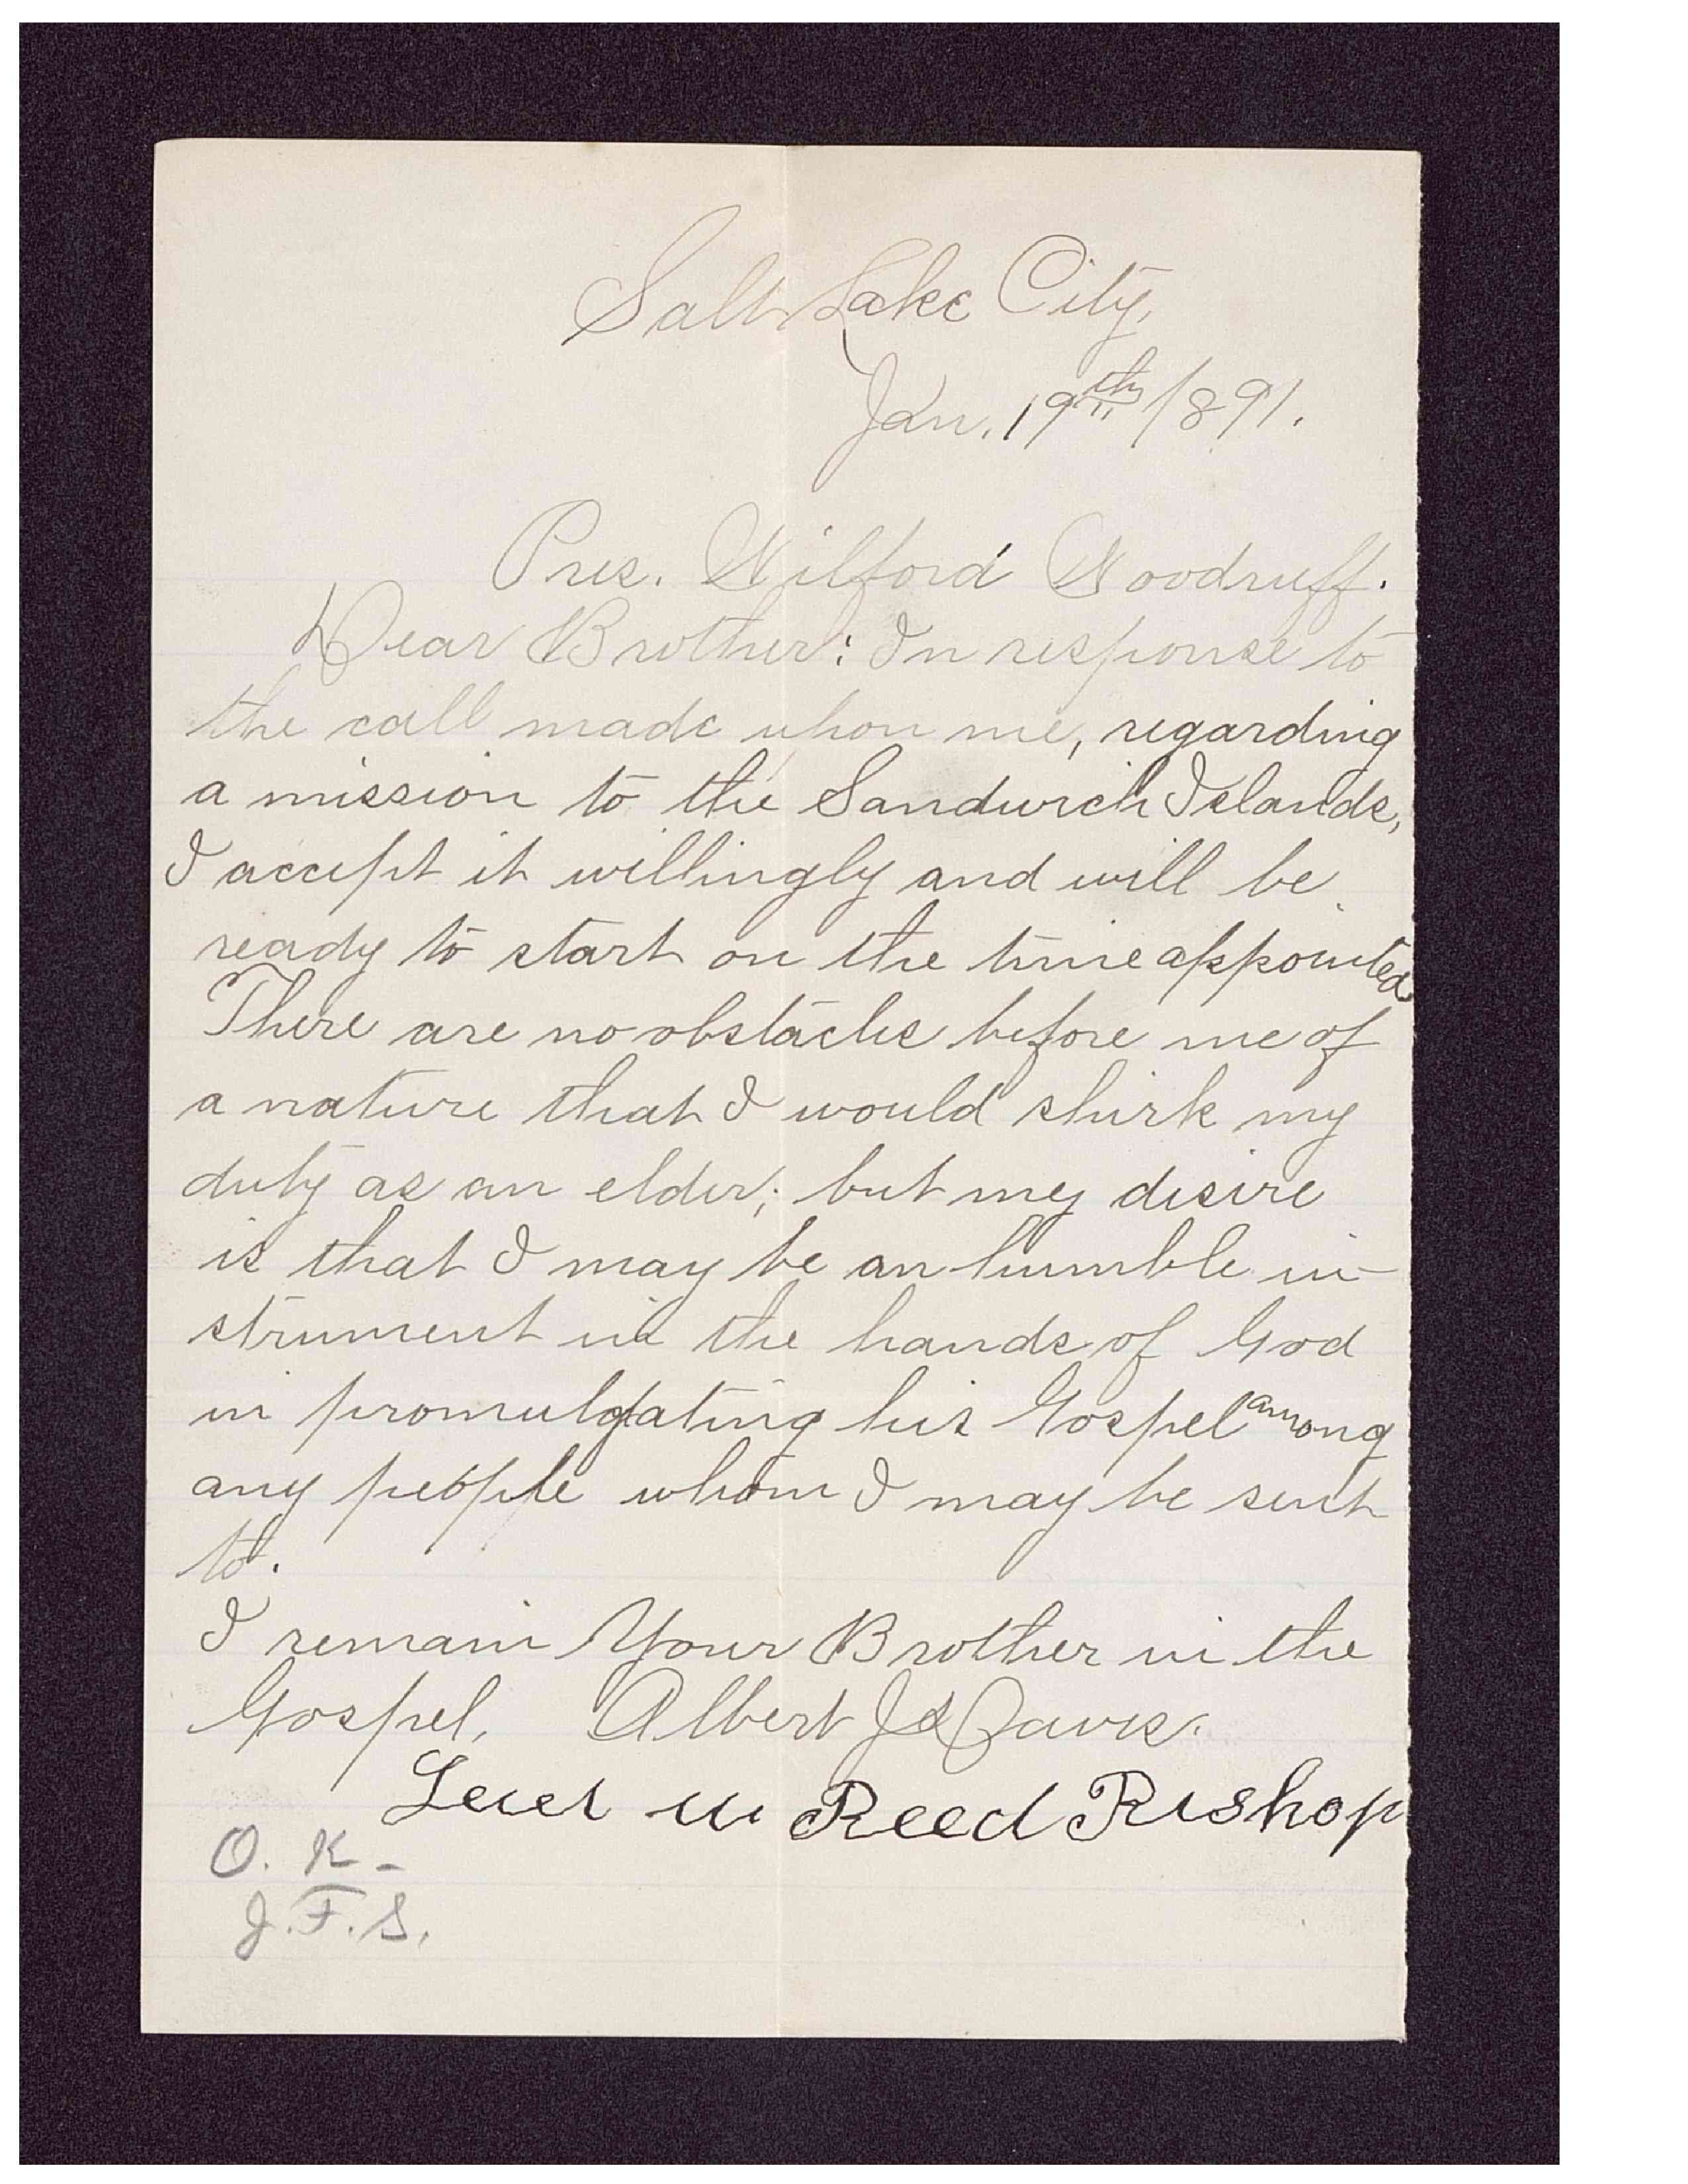 Salt Lake City,
Jan. 19th 1891.
Pres. Wilford Woodruff.
Dear Brother: In response to
the call made upon me, regarding
a mission to the Sandwich Islands,
I accept it willingly and will be
ready to start on the time appointed
There are no obstacles before me of
a nature that I would shirk my
duty as an elder; but my desire
is that I may be an humble in-
strument in the hands of God
in promulgating his Gospel among
any people whom I may be sent
to.
I remain Your Brother in the
Gospel, Albert J Davis.
Reed Bishop
O. K-
J. F. S.